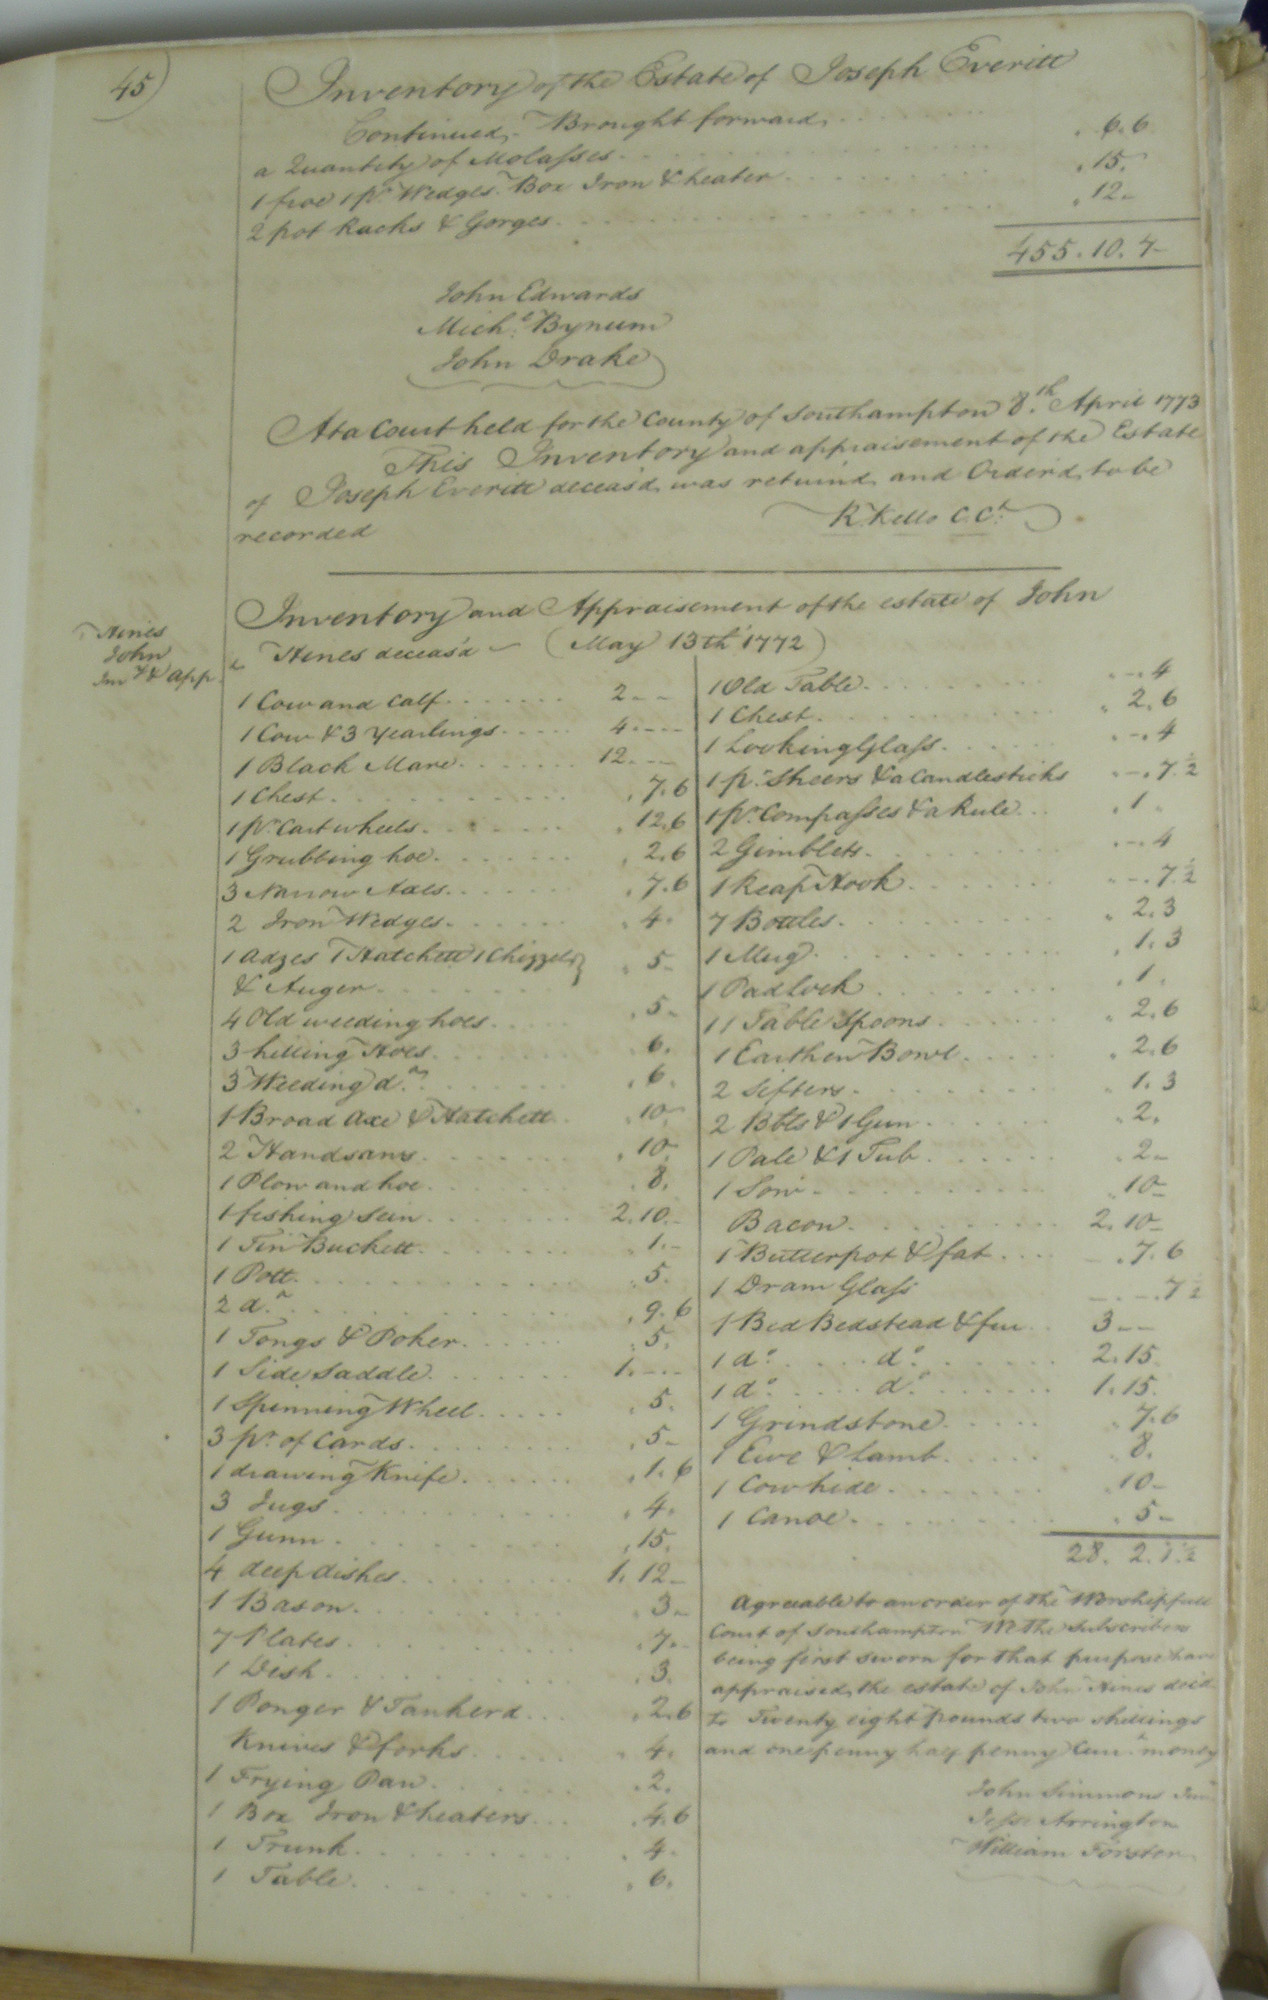 45)
Inventory of the Estate of Joseph Everitt
Continued. Brought forward
a Quantity of Molasses . 6. 6
1 froe 1 pr. Wedges. Box Iron & heater . 15.
2 pot Racks & Gorges . 12 -
455. 10. 7 -
John Edwards
Michl. Bynum
John Drake
At a Court held for the County of Southampton 8th. April 1773
This Inventory and appraisement of the Estate
of Joseph Everitt deceas'd was return'd and Order'd to be
recorded
R. Kello C. Ct.
Hines
John
Invy & app.
Inventory and Appraisement of the estate of John
Hines deceas'd - (May 13th 1772)
1 Cow and Calf 2 - -
1 Cow & 3 Yearlings 4 - -
1 Black Mare 12 - -
1 Chest . 7. 6
1 pr. Cart wheels . 12. 6
1 Grubbing hoe . 2. 6
3 Narrow Axes . 7. 6
2 Iron Wedges . 4.
1 Adzes 1 Hatchett 1 Chizzel
& Auger . 5 -
4 Old weeding hoes . 5 -
3 hilling Hoes . 6.
3 Weeding do. . 6.
1 Broad Axe & Hatchett . 10.
2 Handsaws . 10.
1 Plow and hoe . 8.
1 fishing Sein 2. 10. -
1 Tin Buckett . 1. -
1 Pott . 5.
2 do. . 9. 6
1 Tongs & Poker . 5.
1 Side Saddle 1. - -
1 Spinning Wheel . 5.
3 pr. of Cards . 5 -
1 drawing Knife . 1. 6
3 Jugs . 4.
1 Gunn . 15.
4 deep dishes 1. 12 -
1 Bason . 3 -
7 Plates . 7 -
1 Dish . 3.
1 Ponger & Tankerd . 2. 6
Knives & forks . 4.
1 Frying Pan . 2.
1 Box Iron & heaters . 4. 6
1 Trunk . 4.
1 Table . 6.
1 Old Table . - . 4
1 Chest . 2. 6
1 Looking Glass . - . 4
1 pr. Sheers & a Candlesticks . - . 7½
1 pr. Compasses & a Rule . 1 .
2 Gimblets . - . 4
1 Reap Hook . - . 7½
7 Bottles . 2. 3
1 Mug . 1. 3
1 Pad Lock . 1 .
11 Table Spoons . 2. 6
1 Earthen Bowl . 2. 6
2 Sifters . 1. 3
2 Bbls & 1 Gun . 2.
1 Pale & 1 Tub . 2 -
1 Sow . 10 -
Bacon 2. 10 -
1 Butter pot & fat . 7. 6
1 Dram Glass - . - . 7½
1 Bed Bedstead & fur 3 - -
1 do. do. 2. 15.
1 do. do. 1. 15.
1 Grindstone . 7. 6
1 Ewe & Lamb . 8.
1 Cow hide . 10 -
1 Canoe . 5 -
28. 2. 1½
Agreeable to an order of the Worshipfull
Court of Southampton We the Subscribers
being first sworn for that purpose have
appraised the estate of John Hines dec'd
to Twenty eight pounds two shillings
and one penny half penny Curr. money
John Simmons Jun
Jesse Arrington
William Forster